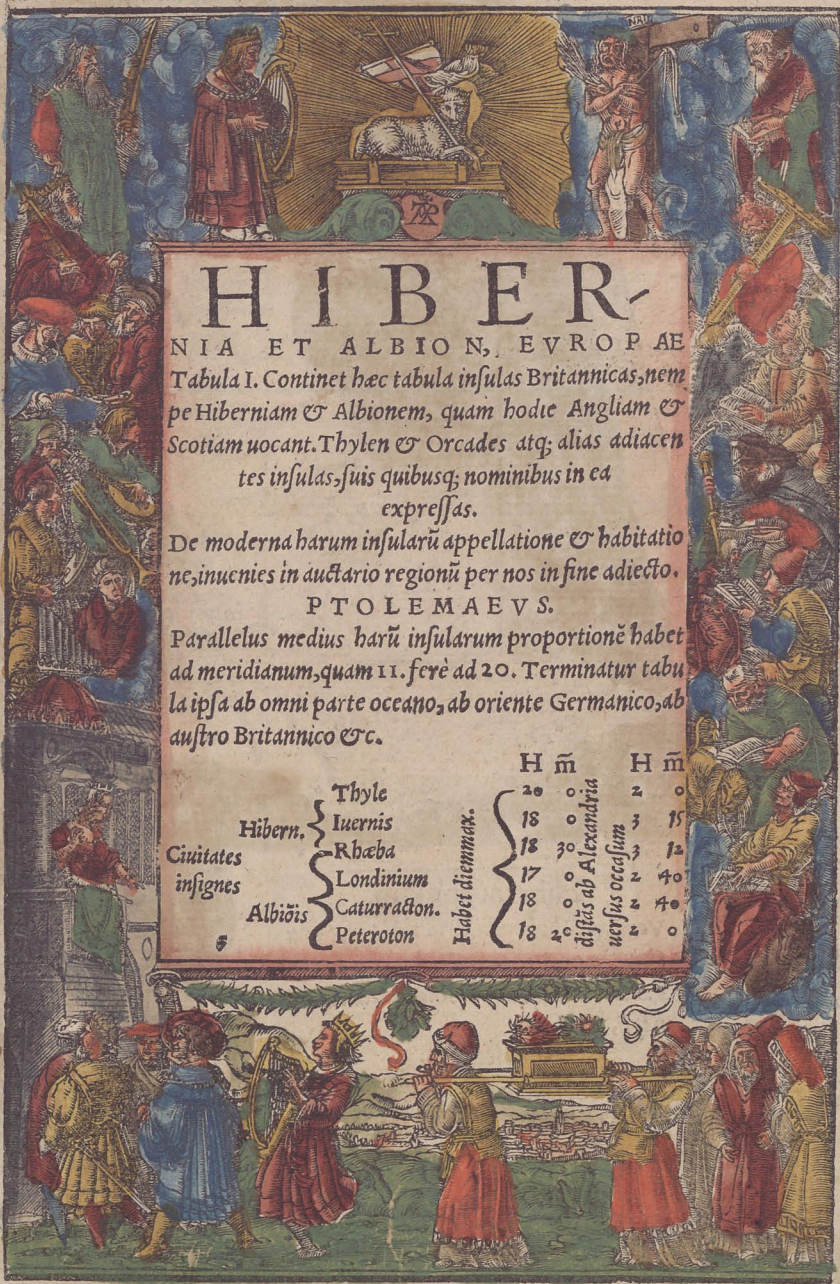 NRI
HIBER-
NIA ET ALBION, EVROPAE
Tabula I. Continet hæc tabula inſulas Britannicas, nem
pe Hiberniam & Albionem, quam hodie Angliam &
Scotiam uocant. Thylen & Orcades atq; alias adiacen
tes inſulas, ſuis quibusq; nominibus in ea
expreſſas.
De moderna harum inſularũ appellatione & habitatio
ne, inuenies in auctario regionũ per nos in fine adiecto.
PTOLEMAEVS.
Parallelus medius harũ inſularum proportionẽ habet
ad meridianum, quam 11. ferè ad 20. Terminatur tabu
la ipſa ab omni parte oceano, ab oriente Germanico, ab
auſtro Britannico &c.
H m̃ H m̃
Ciuitates inſignes
Hibern.
Albiõis
Habet diem max.
diſtãs ab Alexandria
uerſus occaſum
Thyle 20 0 2 0
Iuernis 18 0 3 15
Rhæba 18 30 3 12
Londinium 17 0 2 40
Caturracton. 18 0 2 40
Peteroton 18 20 2 0